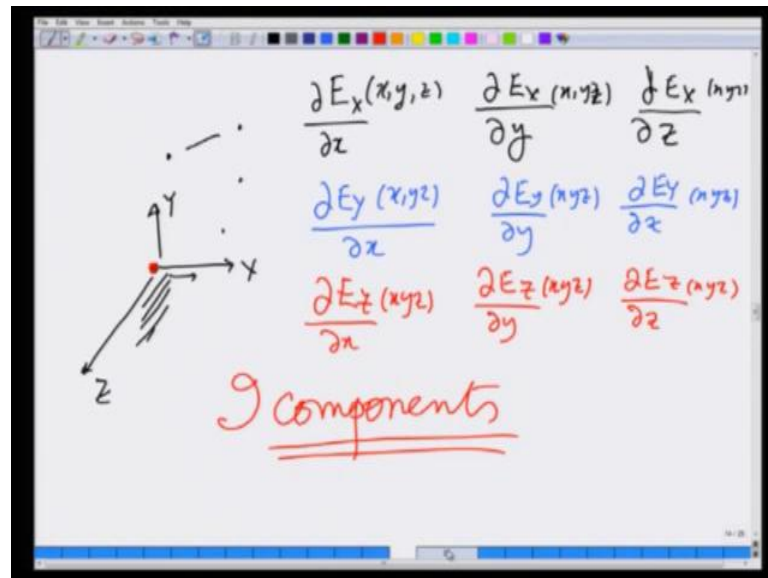 File Edit View Insert Actions Tools Help
∂Eₓ(x,y,z)/∂x ∂Eₓ(x,yz)/∂y ∂Eₓ(xyz)/∂z
Y
∂Ey(x,yz)/∂x ∂Ey(xyz)/∂y ∂Ey(xyz)/∂z
X
∂Ez(xyz)/∂x ∂Ez(xyz)/∂y ∂Ez(xyz)/∂z
Z
9 components